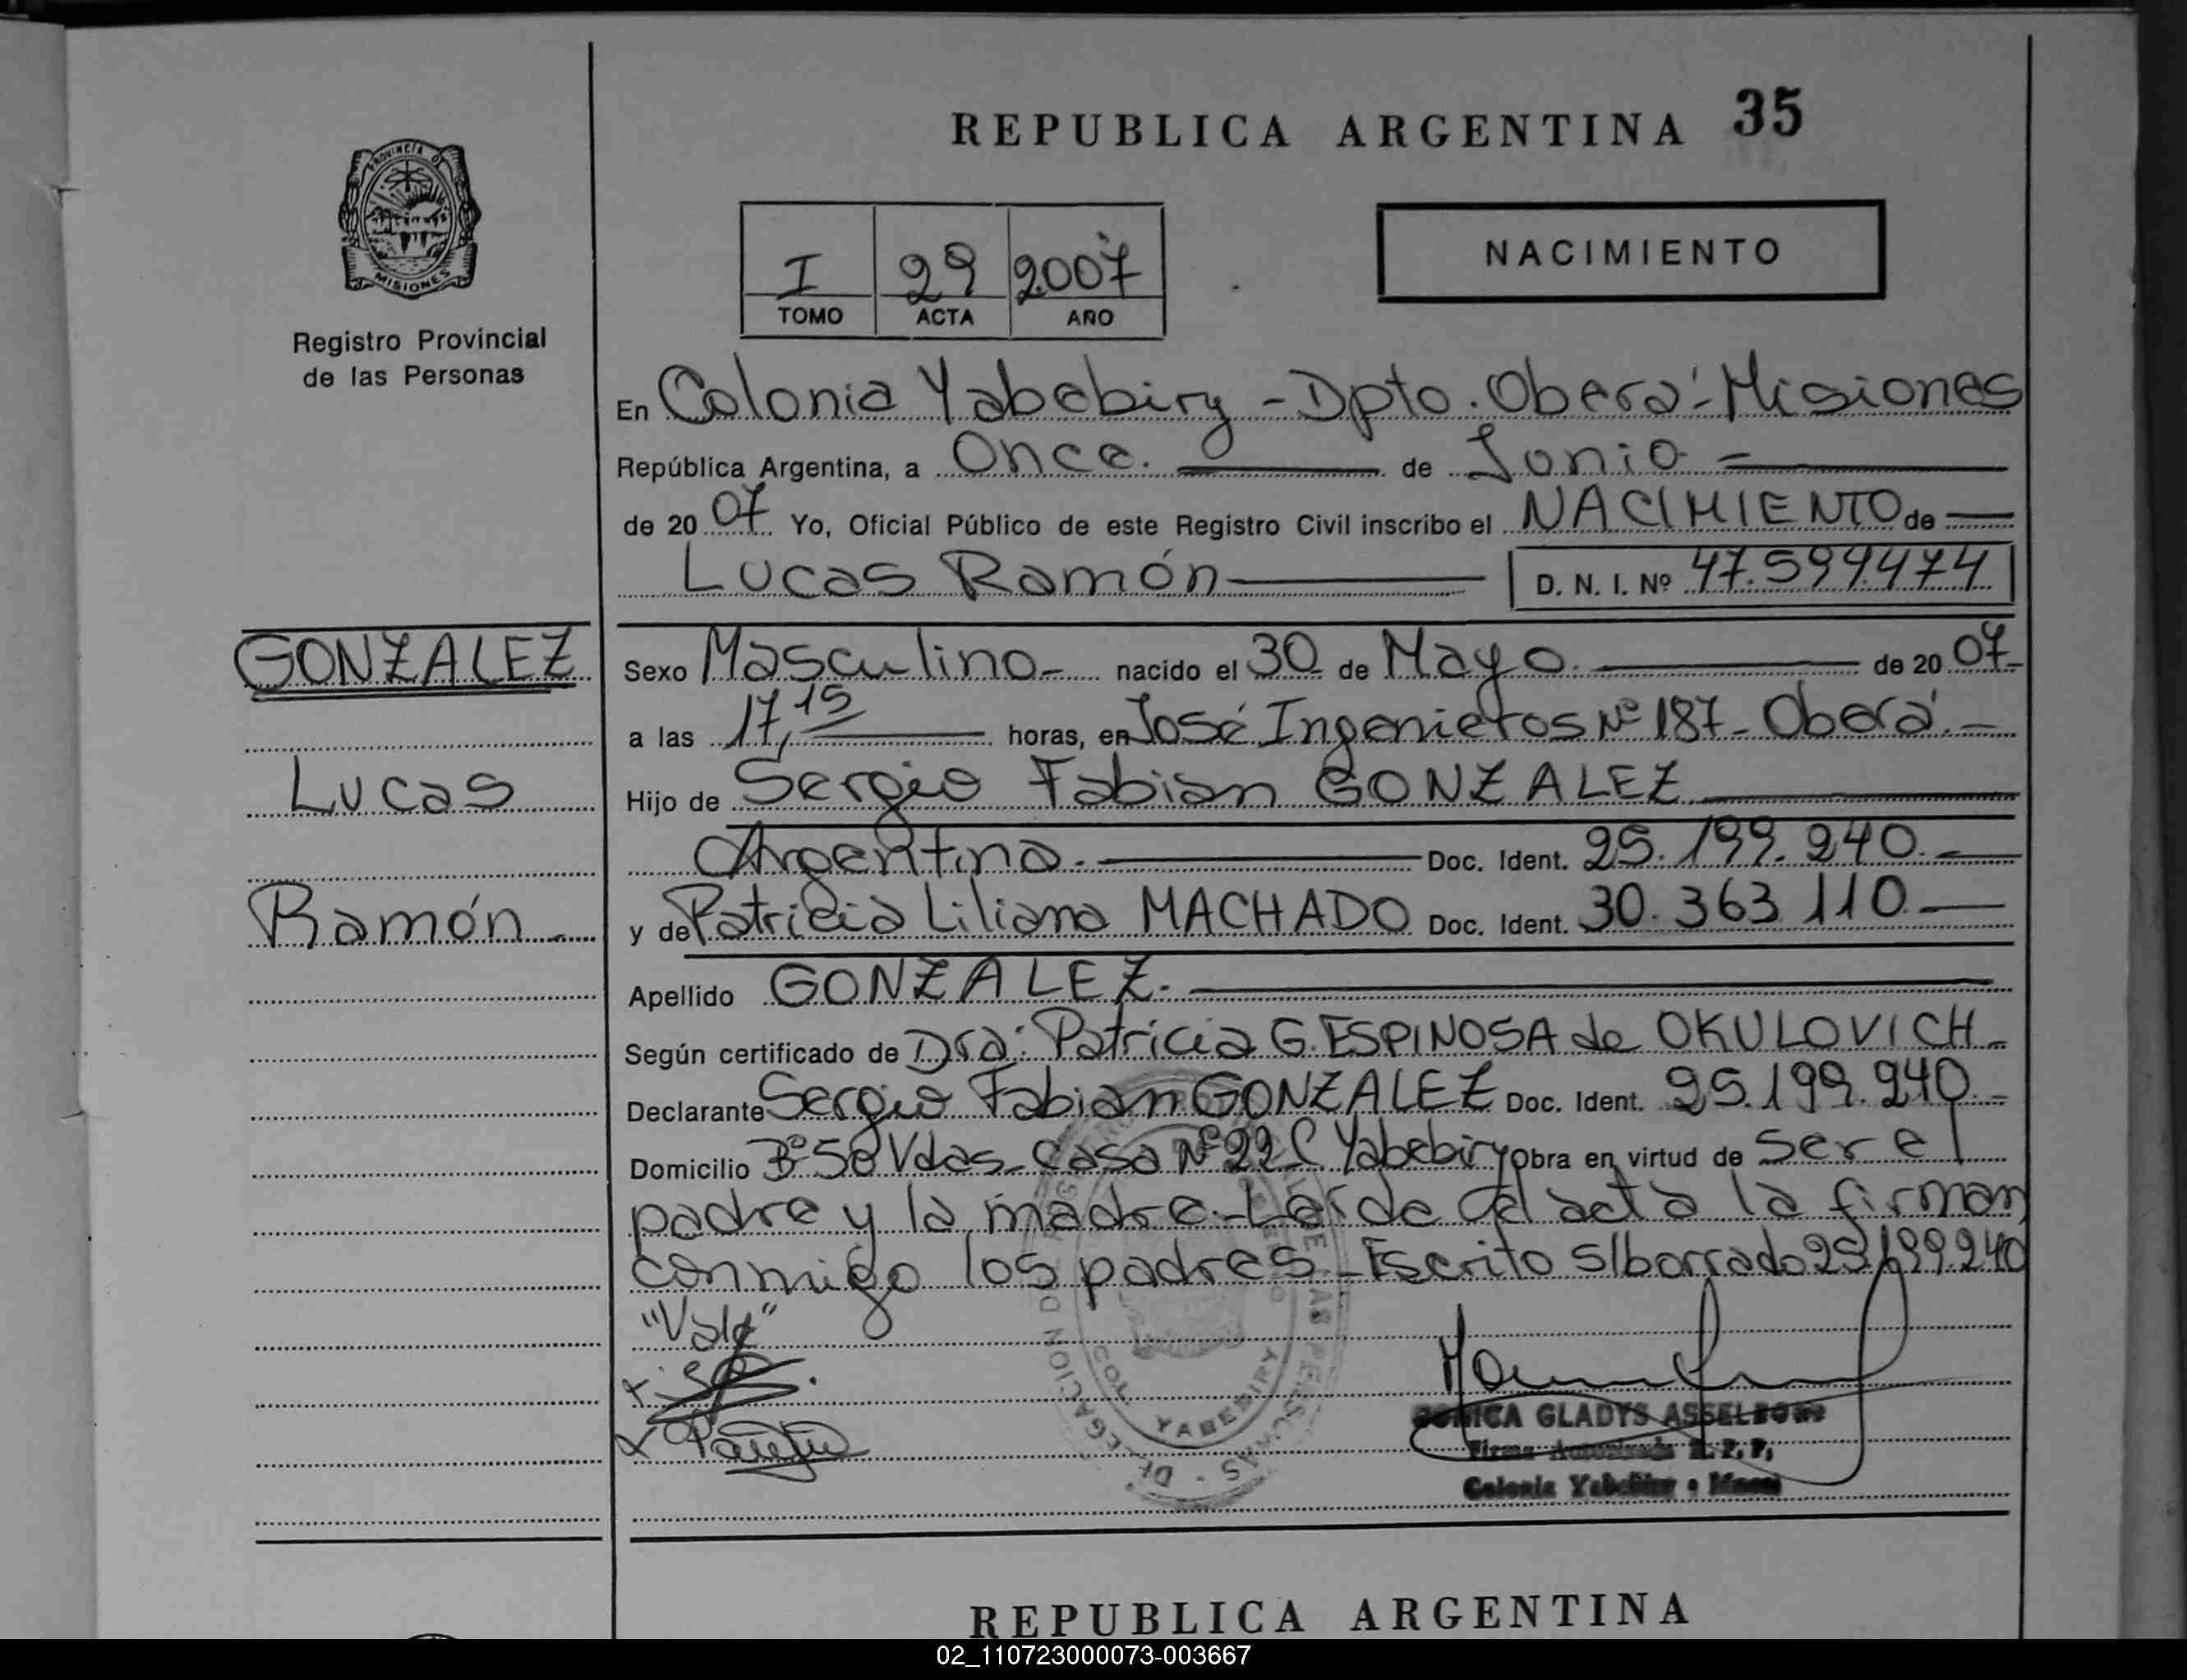 REPUBLICA ARGENTINA 35
PROVINCIA D
MISIONES
Registro Provincial
de las Personas
I 29 2007
TOMO ACTA AÑO
NACIMIENTO
En Colonia Yabebiry - Dpto. Oberá - Misiones
República Argentina, a Once. de Junio
de 20 07 Yo, Oficial Público de este Registro Civil inscribo el NACIMIENTO de
Lucas Ramón D. N. I. Nº 47.594.474
GONZALEZ
Sexo Masculino - nacido el 30 de Mayo. de 20 07-
a las 17,15 horas, en José Ingenieros Nº 187 - Oberá. -
Lucas
Hijo de Sergio Fabian GONZALEZ
Argentina. - Doc. Ident. 25.199.240. -
Ramón -
y de Patricia Liliana MACHADO Doc. Ident. 30.363.110 -
Apellido GONZALEZ. -
Según certificado de Dra: Patricia G. ESPINOSA de OKULOVICH -
Declarante Sergio Fabian GONZALEZ Doc. Ident. 25.199.240. -
Domicilio Bº 50 Vdas - Casa Nº 22 C Yabebiry Obra en virtud de ser el
padre y la madre - Leída el acta la firman
conmigo los padres - Escrito s/borrado 25.199.240
"Vale"
GLADYS
Firma Autorizada R. P. P.
Colonia
COL. YABEBIRY
REPUBLICA ARGENTINA
02_110723000073-003667